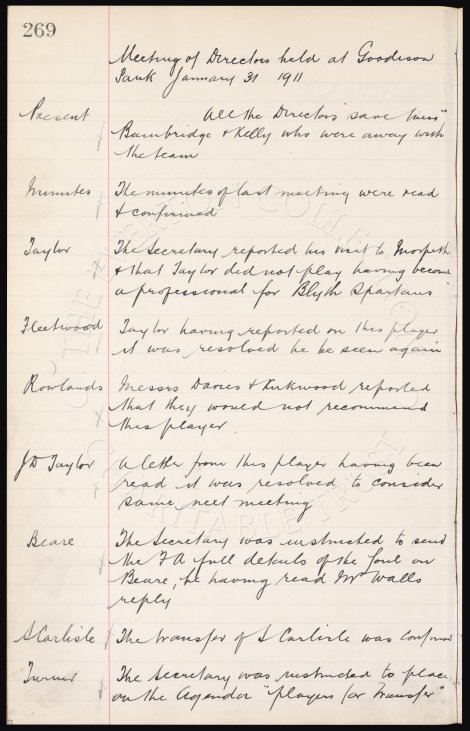 269
Meeting of Directors held at Goodison
Park January 31 1911
Present
All the Directors save Messrs
Bainbridge & Kelly who were away with
the team
Minutes The minutes of last meeting were read
& confirmed
Taylor The Secretary reported his visit to Morpeth
& that Taylor did not play having become
a professional for Blyth Spartans
Fleetwood Taylor having reported on this player
it was resolved he be seen again
Rowlands Messrs Davies & Kirkwood reported
that they would not recommend
this player.
JD Taylor A letter from this player having been
read it was resolved to consider
same next meeting
Beare The Secretary was instructed to send
the FA full details of the foul on
Beare, he having read Mr Walls
reply
S Carlisle The transfer of S Carlisle was confirmed
Turner The Secretary was instructed to place
on the Agenda "players for Transfer"
THE EVERTON COLLECTION
CHARITABLE TRUST